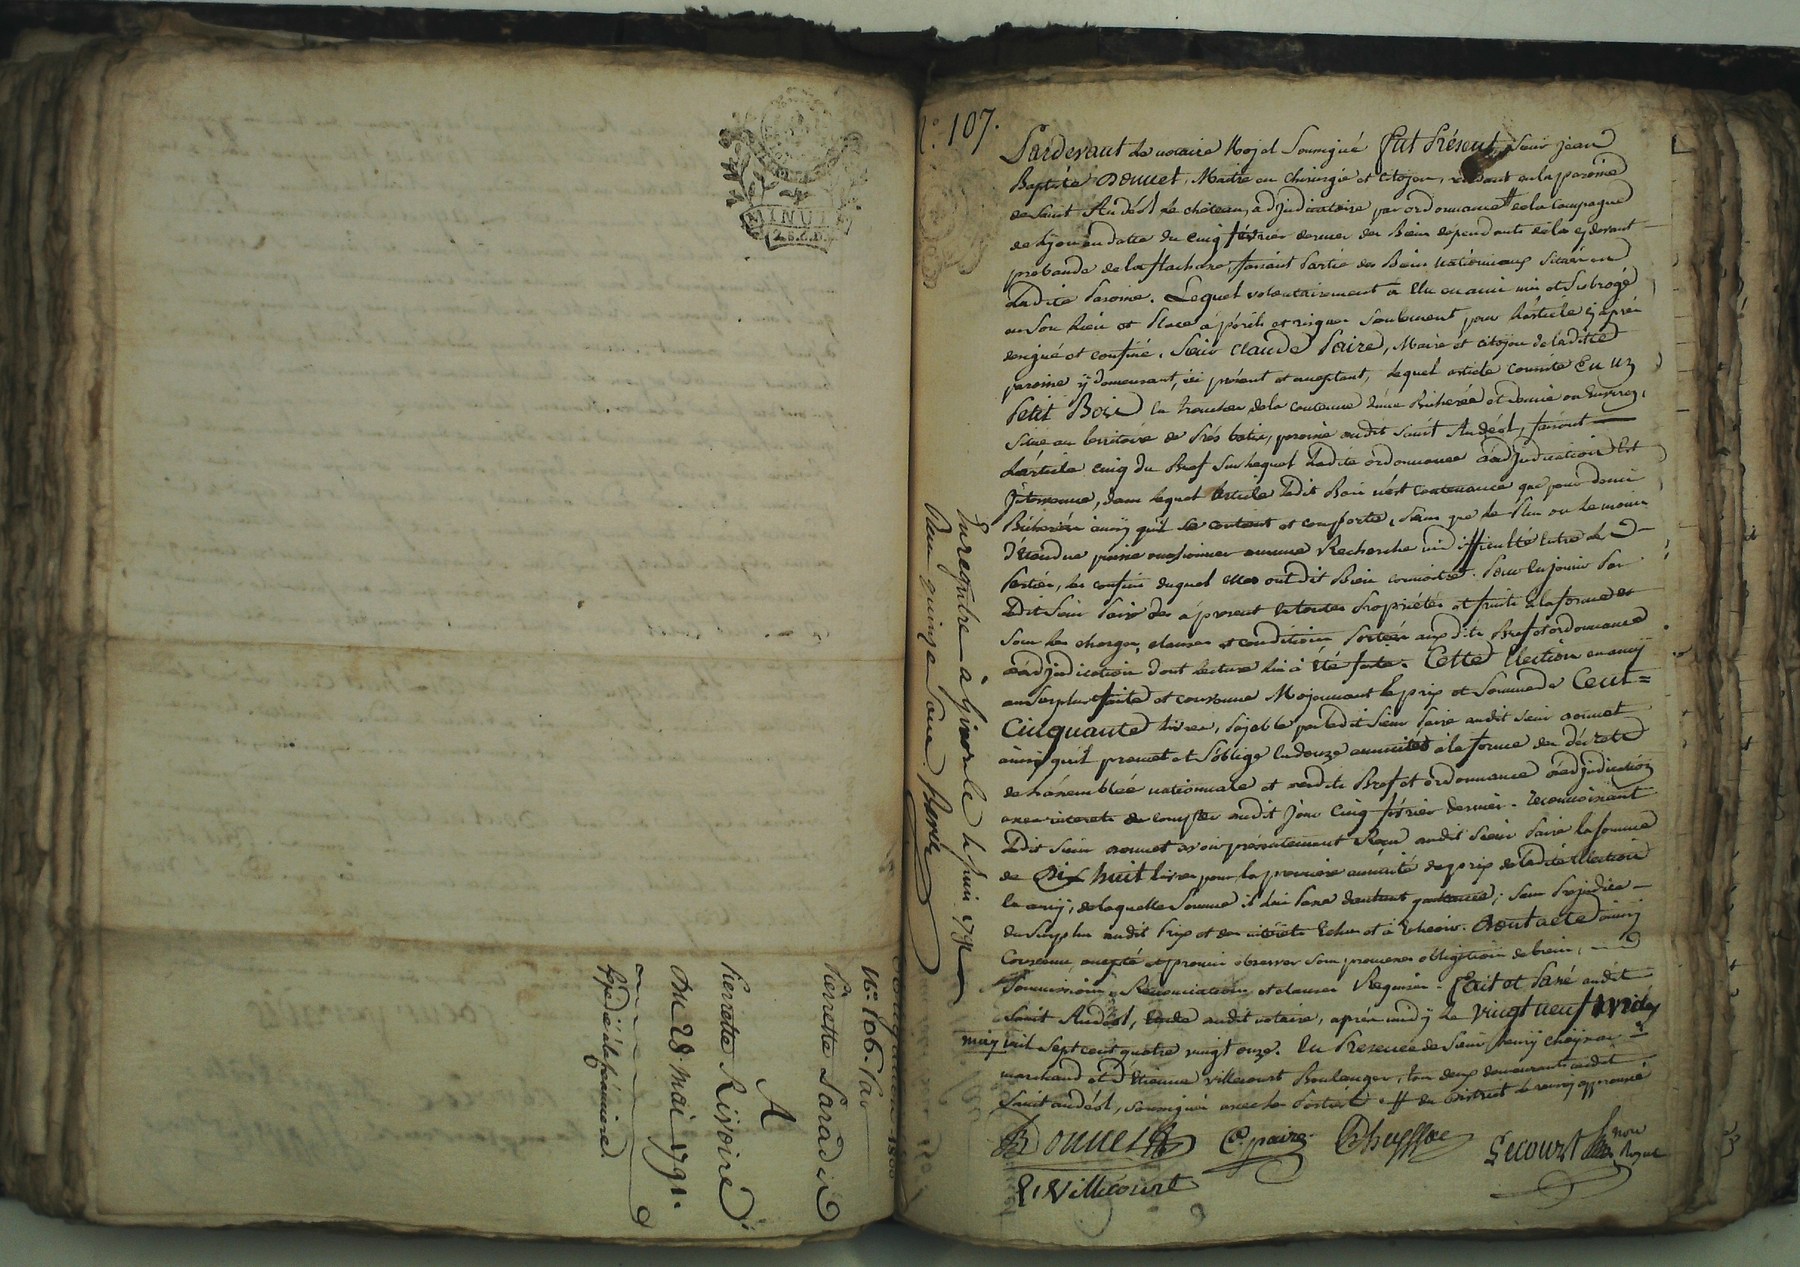 MINUTE
2.S.6.D.
N.° 106. Par
Pierrette Paradis
A
Pierrette Rivoire
Du 28 mai 1791.
Expédié à la fermiere.
107.
Pardevant le notaire Royal soussigné fut présent sieur jean
Baptiste Donnet, Maitre en chirurgie et citoyen, résidant en la paroisse
de saint Andéol le chateau, adjudicataire par ordonnance # de la Campagne
de Lyon en datte du cinq février dernier des Biens dependants de la cydevant
prebande de la flachere, faisant partie des Biens nationnaux situés en
ladite paroisse. Lequel volontairement a élu en ami mis et subrogé
en son Lieu et Place a périls et risques seulement pour l'article cy après
designé et confiné, sieur Claude Paire, Maire et citoyen de ladite
paroisse y demeurant, ici présent et acceptant, lequel article consiste En un
Petit Bois de la contenue d'une Bicherée et demie ou Environ,
situé au territoire de Prés batie, paroisse dudit saint Andéol, faisant
L'article cinq du Bref sur lequel ladite ordonnance d'adjudication Est
intervenue, dans lequel article ledit Bois n'est contenancé que pour demie
Bicherée ainsy qu'il se contient et comporte, sans que le plus ou le moins
d'étendue puisse occasionner aucune Recherche ni difficulté entre les
Parties, les confins duquel elles ont dit Bien connoitre. Pour en jouir par
ledit sieur Paire des a présent en toutes Propriétés et fruits à la forme et
sous les charges, clauses et conditions Portées auxdits Bref et ordonnance
d'adjudication dont lecture lui a été faite. Cette Election en amy
au surplus faite et convenue Moyennant le prix et somme de Cent=
Cinquante livres, payable par ledit sieur Paire audit sieur Donnet
ainsi qu'il promet et s'oblige en douze annuités à la forme des décrets
de l'assemblée nationnale et desdits Bref et ordonnance d'adjudication
avec intérets à compter dudit jour cinq février dernier. reconnoissant
ledit sieur Donnet avoir présentement Reçu dudit sieur Paire la somme
de Dix huit livres pour la premiere annuité du prix de ladite Election
en amy, de laquelle somme il lui passe d'autant quittance, sans Prejudice
du surplus dudit Prix et des intérêts Echus et à Echeoir. Dont acte ainsy
Convenu, accepté et promis observer sous promesses obligation de biens,
soumissions, Renonciations et clauses Requises. Fait et Passé audit
Saint Andéol, Etude dudit notaire, après midy le vingt neuf
may mil sept cent quatre vingt onze. En Presence de sieur
marchand et d'Etienne Villecourt Boulanger, tous deux demeurants audit
saint andéol, soussignés avec les Parties. # du District de approuvé
Donnet C. paire
E. Villecourt Lecourt no.re Royal
Enregistré à Givors le juin 1791
Reçu quinze sous.